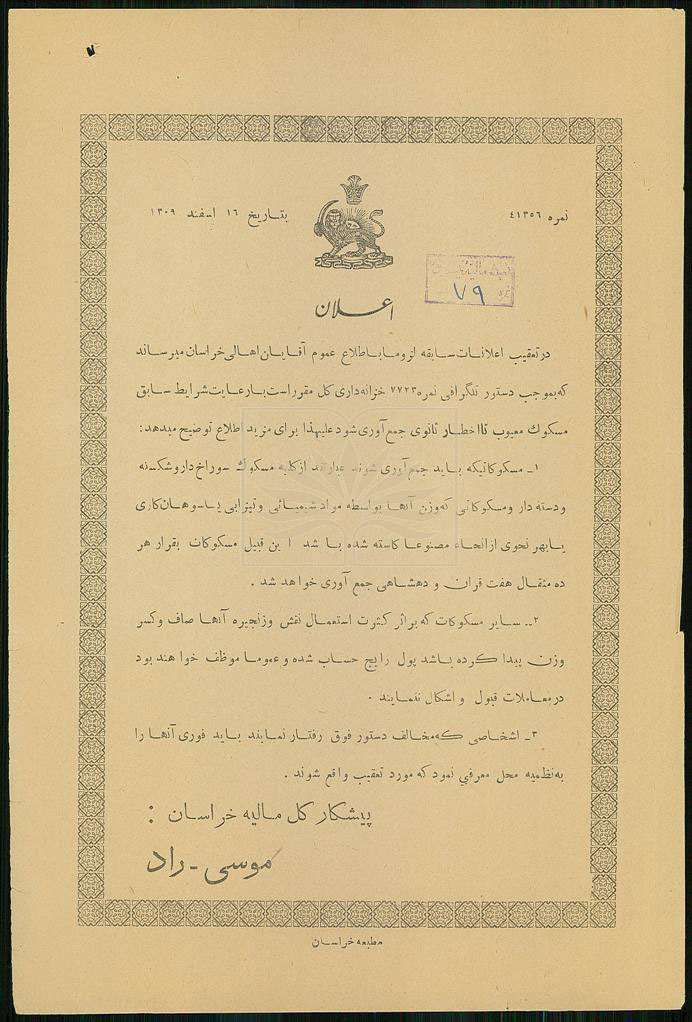 نمره ۴۱۳۵۶
بتاریخ ۱۶ اسفند ۱۳۰۹
۷۹
اعلان
در تعقیب اعلانات سابقه لزوما باطلاع عموم آقایان اهالی خراسان میرساند
که بموجب دستور تلگرافی نمره ۷۷۲۳ خزانه‌داری کل مقرر است با رعایت شرایط سابق
مسکوك معیوب تا اخطار ثانوی جمع آوری شود علیهذا برای مزید اطلاع توضیح میدهد:
۱ـ مسکوکاتیکه باید جمع آوری شوند عبارتند از کلیه مسکوك سوراخ دار و شکسته
و دسته دار و مسکوکاتی که وزن آنها بواسطه مواد شیمیائی و تیزابی یا سوهان کاری
یا بهر نحوی از انحاء مصنوعا کاسته شده باشد این قبیل مسکوکات بقرار هر
ده مثقال هفت قران و دهشاهی جمع آوری خواهد شد .
۲ـ سایر مسکوکات که براثر کثرت استعمال نقش و زنجیره آنها صاف و کسر
وزن پیدا کرده باشد پول رایج حساب شده و عموما موظف خواهند بود
در معاملات قبول و اشکال ننمایند .
۳ـ اشخاصی که مخالف دستور فوق رفتار نمایند باید فوری آنها را
به نظمیه محل معرفی نمود که مورد تعقیب واقع شوند .
پیشکار کل مالیه خراسان :
موسی - راد
مطبعه خراسان